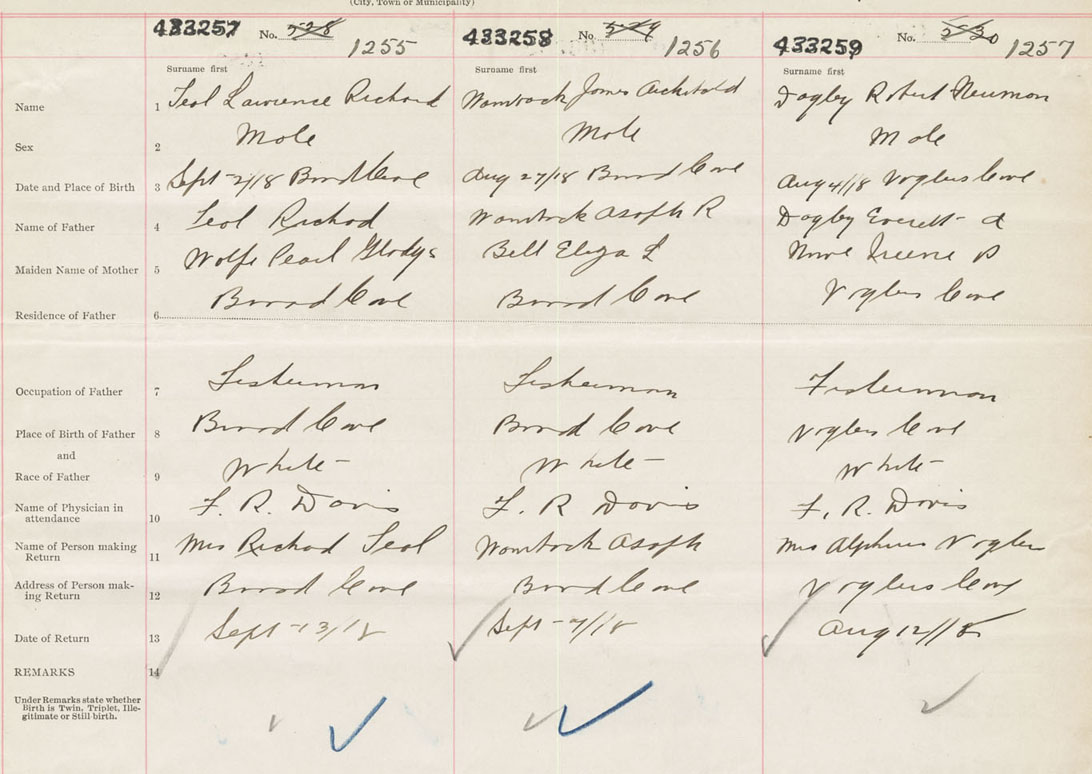 (City, Town or Municipality)
433257 No. 528 1255 433258 No. 529 1256 433259 No. 530 1257
Surname first Surname first Surname first
Name 1 Teal Lawrence Richard Wamback James Archibald Dagley Robert Neuman
Sex 2 Male Male Male
Date and Place of Birth 3 Sept 2/18 Broad Cove Aug 27/18 Broad Cove Aug 4/18 Voglers Cove
Name of Father 4 Teal Richard Wamback Asaph R Dagley Everett A
Maiden Name of Mother 5 Wolfe Pearl Gladys Bell Eliza L Irene
Residence of Father 6 Broad Cove Broad Cove Voglers Cove
Occupation of Father 7 Fisherman Fisherman Fisherman
Place of Birth of Father 8 Broad Cove Broad Cove Voglers Cove
and
Race of Father 9 White White White
Name of Physician in
attendance 10 F. R. Davis F. R Davis F. R. Davis
Name of Person making
Return 11 Mrs Richard Teal Wamback Asaph Mrs Alpheus Vogler
Address of Person mak-
ing Return 12 Broad Cove Broad Cove Voglers Cove
Date of Return 13 Sept 13/18 Sept 7/18 Aug 12/18
REMARKS 14
Under Remarks state whether
Birth is Twin, Triplet, Ille-
gitimate or Still-birth.